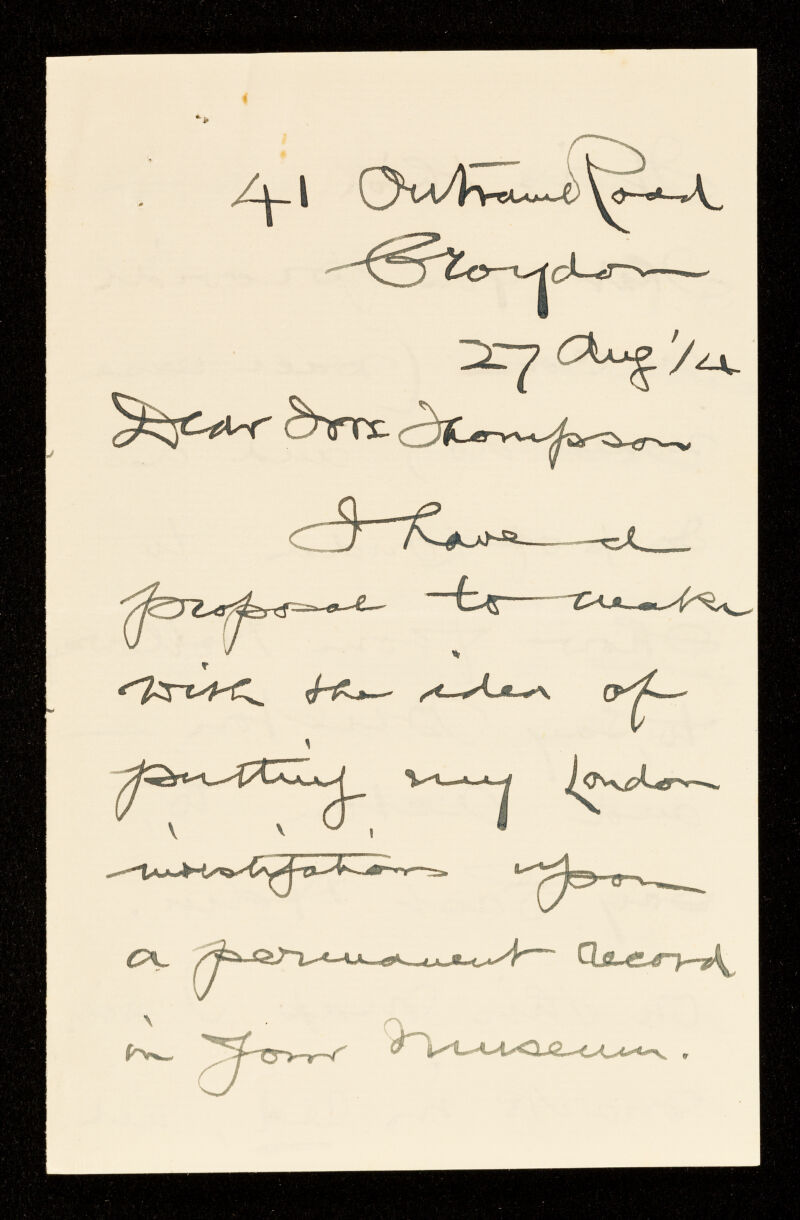 41 Outram Road
Croydon
27 Aug '14
Dear Mrs Thompson
I have a
proposal to make
with the idea of
putting my London
investigations upon
a permanent record
in Your Museum.